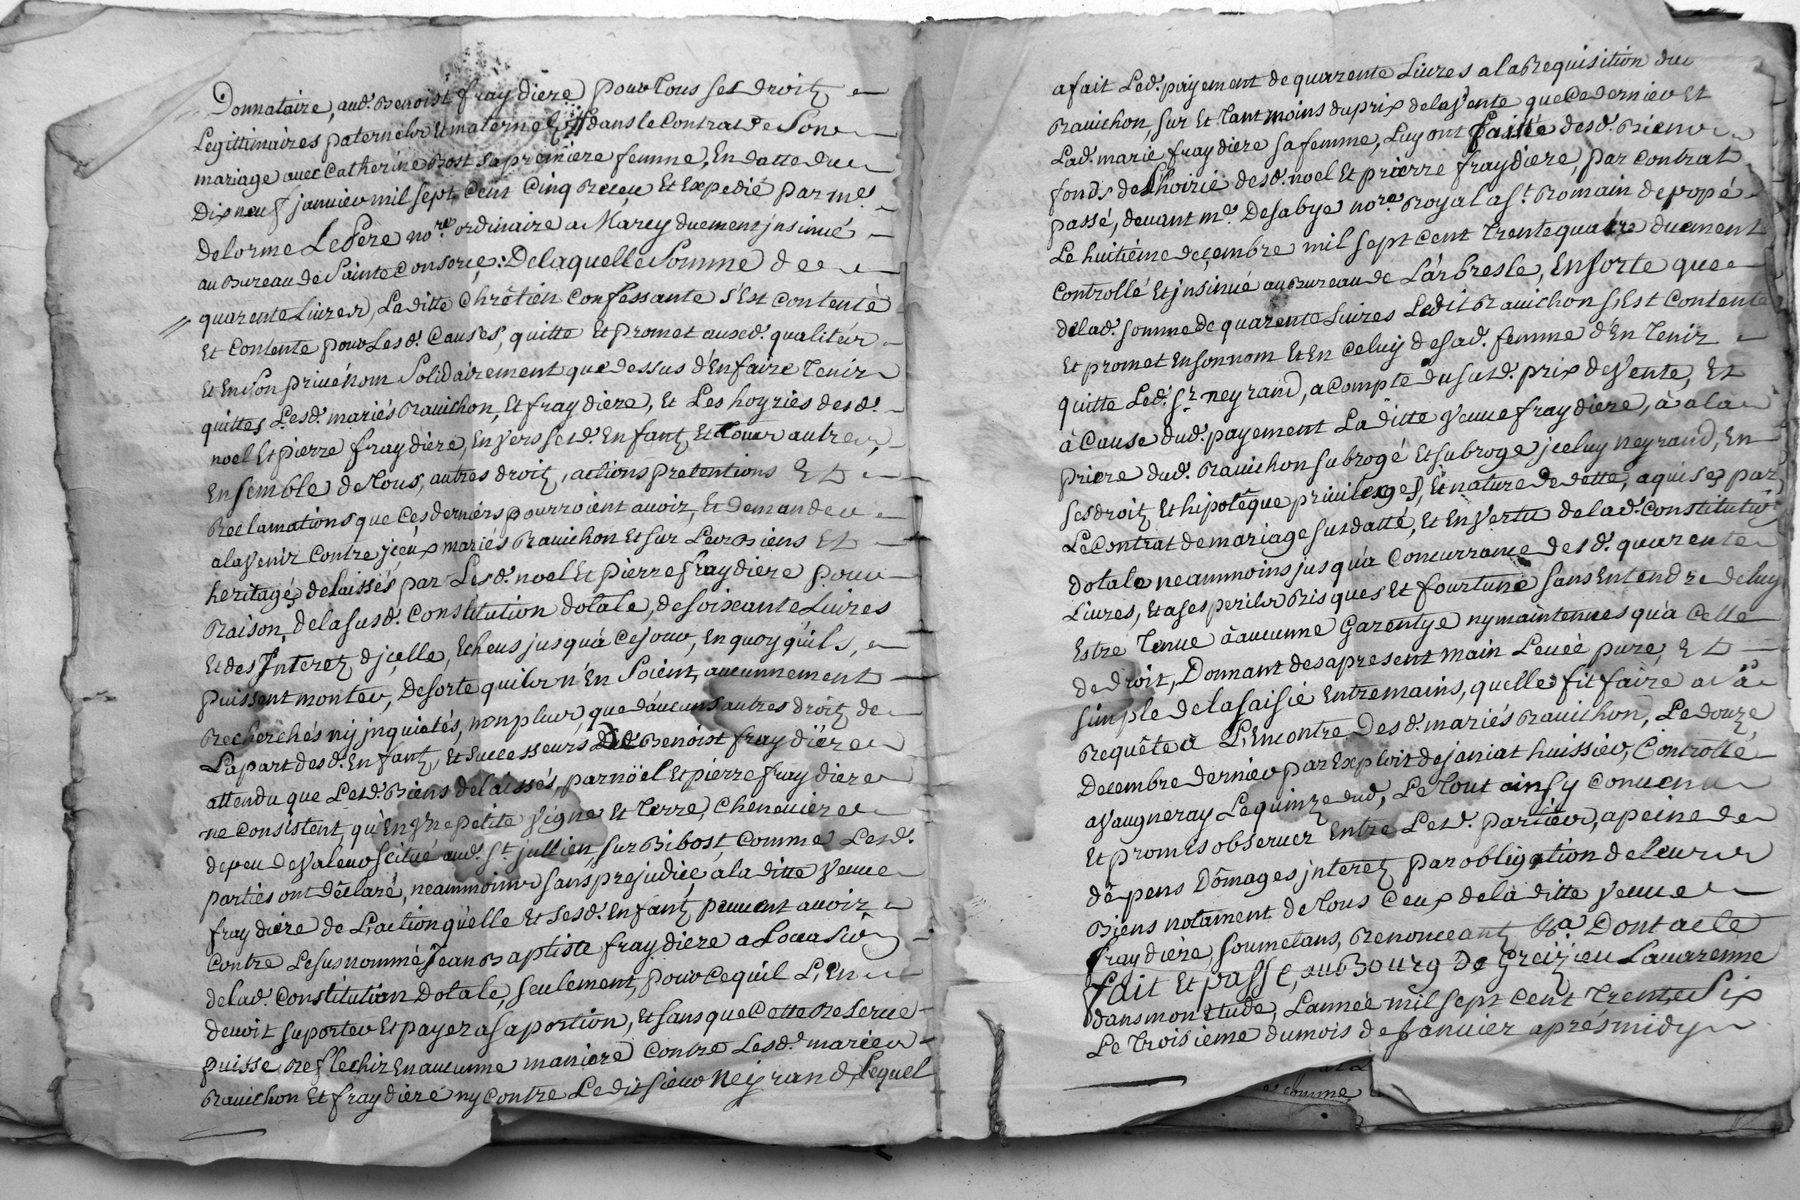 Donnataire, aud. Benoist fraydiere pour tous ses droitz
Legittimaires paternelz et maternelz dans le Contrat de Son
mariage avec Catherine Bost sa premiere femme, En datte du
Dix neuf janvier mil sept cent Cinq Receu Et Expedié par me.
delorme Le Pere nore. ordinaire a Marcy duement jnsinué
au Bureau de Sainte Consorce: De laquelle Somme de
quarente Livres, La ditte Chrêtien Confessante s'Est Contenté
Et Contente pour Lesd. Causes, quitte Et promet ausd. qualitéz
Et En Son privé nom Solidairement que dessus d'En faire Tenir
quittes Lesd. mariés Ravichon, Et fraydiere, Et Les hoyriés desd.
noel Et pierre fraydiere, Envers sesd. Enfantz Et Tous autres,
Ensemble de Tous, autres droitz, actions pretentions Et
Reclamations que Ces derniérs pourroient avoir, Et demander
a lavenir Contre jceux mariés Ravichon Et sur Les Biens Et
heritages delaissés par Lesd. noel Et pierre fraydiere pour
Raison, de la susd. Constitution dotale, de soixante Livres
Et des Jnterez djcelle, Echeus jusqu'à Ce jour, En quoy qu'ils,
puissent monter, de sorte quils n'En Soient, aucunnement
Recherchés ny jnquietés, non plus, que d'aucuns autres droitz de
La part desd. Enfantz, Et successeurs dud. Benoist fraydiere
attendu que Lesd. Biens delaissés, par noël Et pierre fraydiere
ne Consistent, qu'En Vne petite Vigne Et Terre, Cheneviere
de peu de Valeur scitué aud. St. jullien, sur Bibost, Comme Lesd.
parties ont dêclaré, neammoins sans prejudice a la ditte Veuve
fraydiere de L'action qu'elle Et sesd. Enfantz peuvent avoir
Contre Le susnommé Jean Baptiste fraydiere a Loccasion
de lad. Constitution Dotale, seulement, pour Ce quil L'En
devoit suporter Et payer a sa portion, Et sans que Cette Reserve
puisse, Reflechir En aucunne maniere Contre Lesd. mariés
Ravichon Et fraydiere ny Contre Le dit sieur Neyrand, Lequel
a fait Led. payement de quarente Livres a la Requisition du
Ravichon, sur Et Tant moins du prix de la Vente que Ce dernier Et
Lad. marie fraydiere sa femme, Luy ont faitte desd. Biens
fonds de Lhoirie desd. noel Et pierre fraydiere, par Contrat
passé, devant me. Desabye nore. Royal a St. Romain de popé
Le huitiéme deçembre mil sept Cent Trente quatre duement
Controllé Et jnsinué au Bureau de L'arbresle, En sorte que
de lad. somme de quarente Livres Ledit Ravichon s'Est Contenté
Et promet En son nom Et En Celuy de sad. femme d'En Tenir
quitte Led. sr. neyrand, a Compte du susd. prix de Vente, Et
à Cause dud. payement La ditte Veuve fraydiere, à a la
priere dud. Ravichon subrogé Et subroge jceluy neyrand, En
ses droitz Et hipotêque privileges, Et nature de dette, aquises par
Le Contrat de mariage susdatté, Et En Vertu de lad. Constitution
dotale neammoins jusqu'à Concurrance desd. quarente
Livres, Et a ses perils Risques Et fourtune sans Entendre de luy
Estre Tenue à aucunne Garentye ny maintenues qu'a Celle
de droit, Donnant des apresent main Levée pure, Et
simple de la saisié Entre mains, quelle fit faire a sa
Requête à L'Encontre Desd. mariés Ravichon, Le douze
Decembre dernier par Exploit de janiat huissier, Controllé
a Vaugneray Le quinze dud, Le Tout ainsy Convenu
Et promis observer Entre Lesd. parties, a peine de
dêpens Dômages jnterez par obligation de leurs
Biens notament de Tous Ceux de la ditte Veuve
fraydiere, soumetans, Renonceantz &a. Dont acte
fait Et passé, au Bourg De Greizieu Lavarenne
dans mon Etude, L'année mil sept Cent Trente Six
Le Troisieme du mois de Janvier aprés midy
Comme